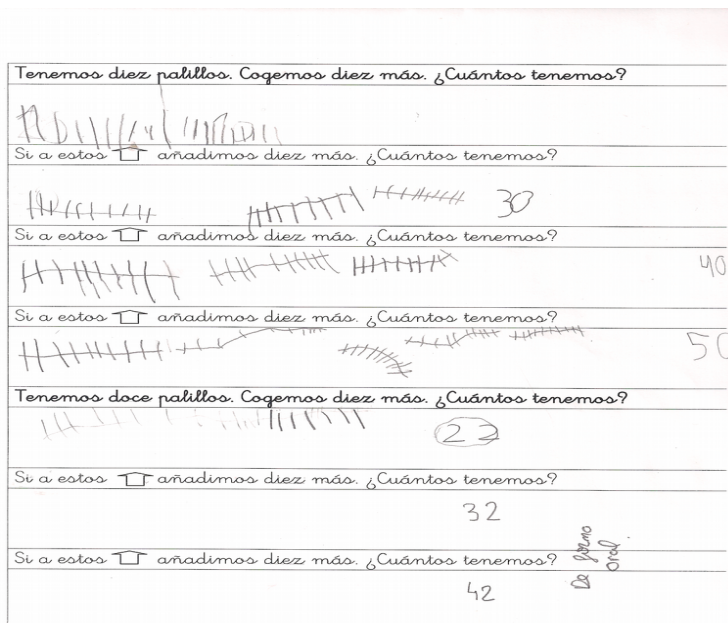 Tenemos diez palillos. Cogemos diez más. ¿Cuántos tenemos?
Si a estos añadimos diez más. ¿Cuántos tenemos?
30
Si a estos añadimos diez más. ¿Cuántos tenemos?
40
Si a estos añadimos diez más. ¿Cuántos tenemos?
50
Tenemos doce palillos. Cogemos diez más. ¿Cuántos tenemos?
22
Si a estos añadimos diez más. ¿Cuántos tenemos?
32
Si a estos añadimos diez más. ¿Cuántos tenemos?
42
De forma
oral.